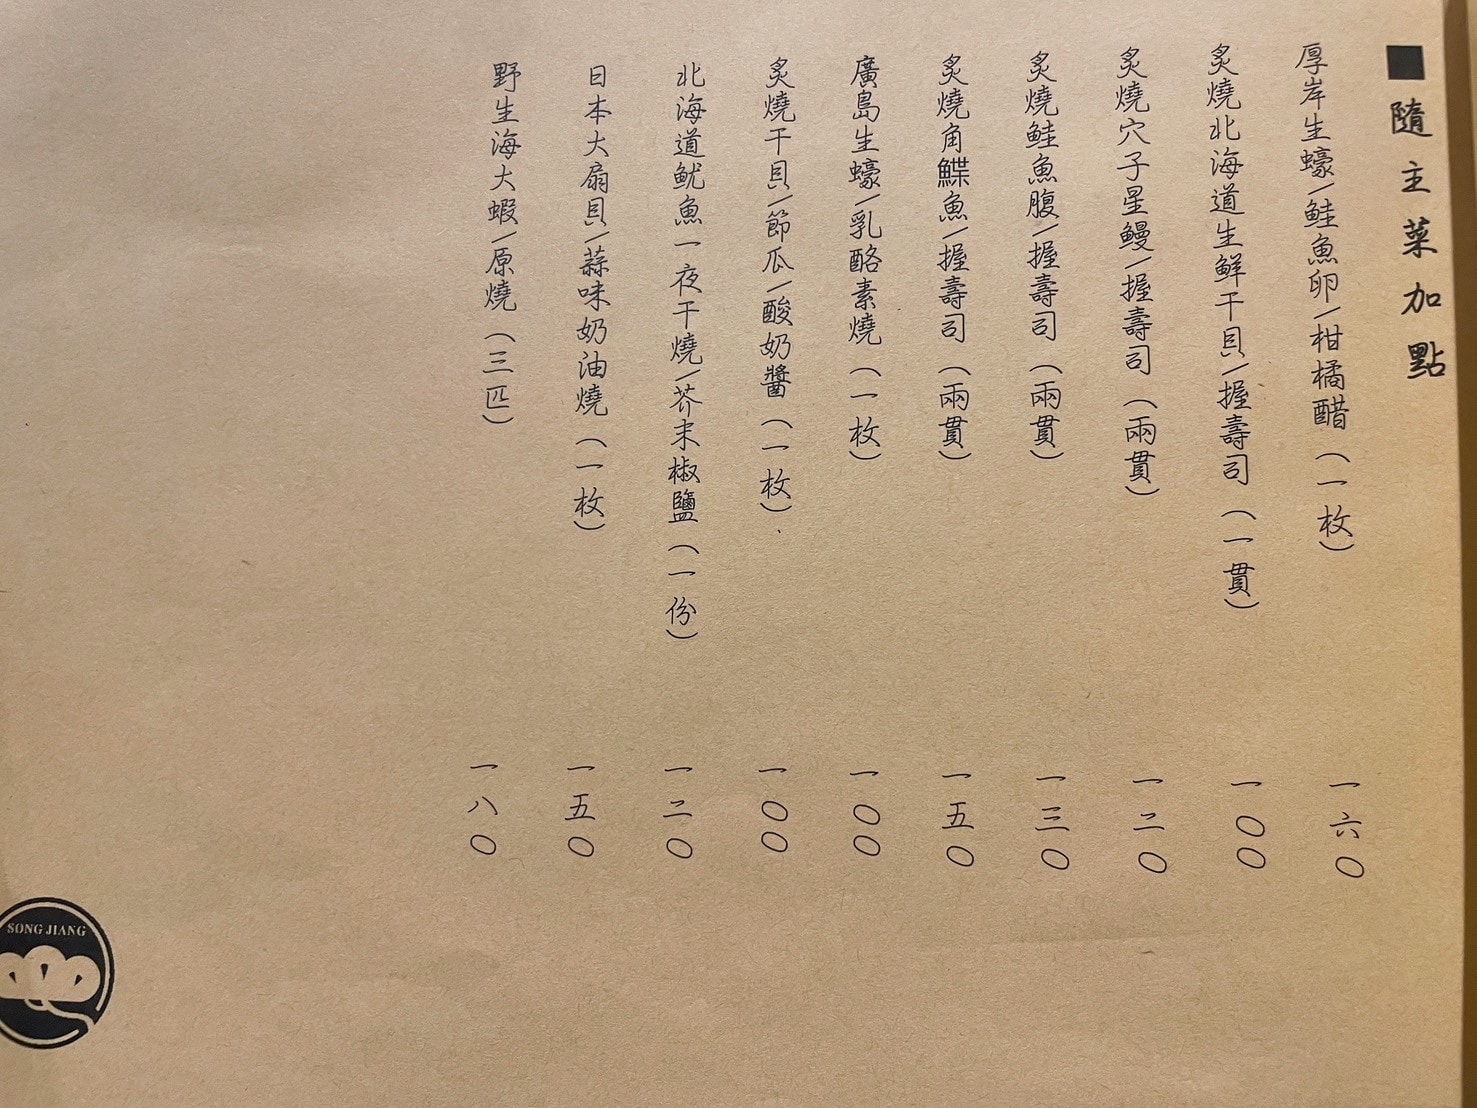 ■隨主菜加點
厚岸生蠔/鮭魚卵/柑橘醋(一枚) 一六〇
炙燒北海道生鮮干貝/握壽司(一貫) 一〇〇
炙燒穴子星鰻/握壽司(兩貫) 一二〇
炙燒鮭魚腹/握壽司(兩貫) 一三〇
炙燒角鰈魚/握壽司(兩貫) 一五〇
廣島生蠔/乳酪素燒(一枚) 一〇〇
炙燒干貝/節瓜/酸奶醬(一枚) 一〇〇
北海道魷魚一夜干燒/芥末椒鹽(一份) 一二〇
日本大扇貝/蒜味奶油燒(一枚) 一五〇
野生海大蝦/原燒(三匹) 一八〇
SONG JIANG